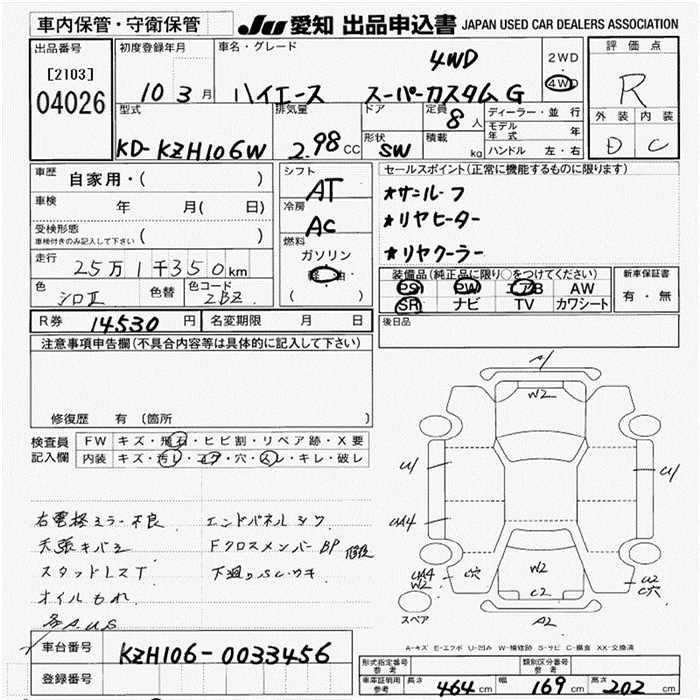 車内保管・守衛保管
JU 愛知 出品申込書 JAPAN USED CAR DEALERS ASSOCIATION
出品番号
[2103]
04026
初度登録年月
10 3月
車名・グレード
4WD
ハイエース スーパーカスタム G
2WD
4WD
評価点
R
外装 内装
D C
型式
KD-KZH106W
排気量
2.98 CC
ドア
形状
SW
定員
8人
積載
kg
ディーラー・並行
モデル年式 年
ハンドル 左・右
車歴 自家用・( )
車検 年 月( 日)
受検形態
車検付きのみ記入して下さい ( )
走行
25万1千350km
色
シロII
色替
色コード
2BZ
シフト
AT
冷房
AC
燃料
ガソリン
軽油
( )
セールスポイント(正常に機能するものに限ります)
★サンルーフ
★リヤヒーター
★リヤクーラー
装備品(純正品に限り○をつけてください)
PS PW エアB AW
SR ナビ TV カワシート
新車保証書
有・無
R券 14530 円 名変期限 月 日
後日品
注意事項申告欄(不具合内容等は具体的に記入して下さい)
修復歴 有 (箇所 )
検査員
記入欄
FW キズ・飛石・ヒビ割・リペア跡・X要
内装 キズ・汚レ・コゲ・穴・スレ・キレ・破レ
右電格ミラー不良 エンドパネルシワ
天張キバミ FクロスメンバーBP 修復
スタッドレスT 下廻りSC・ウキ
オイルもれ
各A.U.S
A1
W2
U1
U1
UA4
UA4
W2
C穴
W2
C2
U2
C穴
A2
スペア
A-キズ E-エクボ U-凹み W-補修跡 S-サビ C-腐食 XX-交換済
車台番号 KZH106-0033456
登録番号
形式指定番号
参考
類別区分番号
参考
車庫証明用
参考
長さ 464 cm 幅 169 cm 高さ 202 cm